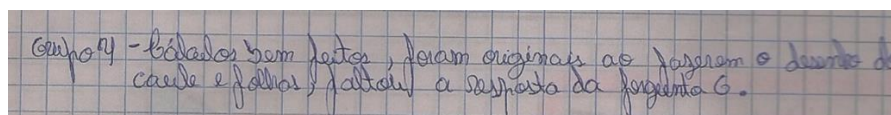 Grupo 4 - Cálados bem feitos, foram originais ao fazerem o desenho do
caule e folhas, faltou a resposta da pergunta 6.